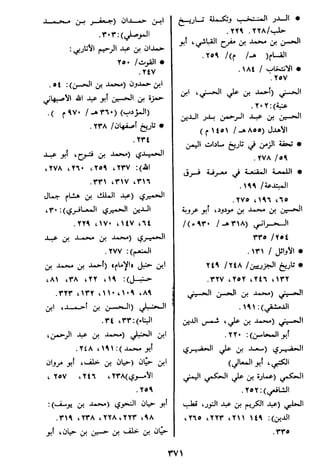 • الدر المنتخب وتكملة تاريخ
حلب/ ٢٢٨ ، ٢٢٩ .
الحسن بن محمد بن مفرح القباشي، أبو
القسام (م / هـ) / ٢٥٩ .
• / ١٨٤ ،
٢٥٧ .
الحسن (أحمد بن علي بن الحسن، ابن
عتبة): ٢٠٢ .
الحسن بن عبد الرحمن بدر الدين
الأهدل (٨٥٥ هـ / ١٤٥١ م)
• تحفة الزمن في تاريخ سادات اليمن
٥٩/ ٢٧٨
• /١٨٩ ،
١٩٥ ، ٢٧٥ .
الحسين بن محمد بن مودود، أبو عروبة
الحراني (٣١٨ هـ / ٩٣٠ م) /
٢٥٤/ ٣٣٥
• الأوائل / ١٣١ .
• تاريخ الجزريين/ ٢٤٨/ ٢٤٩
١٣٢ ، ٢٤٦ ، ٢٥٢ ، ٣٢٧ .
الحسيني (محمد بن الحسن
الدمشقي): ١٩١ .
الحسيني (محمد بن علي، شمس الدين
أبو المحاسن): ٢٢٠ .
الحضرمي (محمد بن علي الحضرمي
المكي، أبو المعالي)
الحكمي (عمارة بن علي الحكمي اليمني
الشافعي): ٢٥٢ .
الحلبي (عبد الكريم بن عبد النور، قطب
الدين): ١٤٩ ، ٢١١ ، ٢٢٣ ، ٢٦٥ ،
٣٣٥ .
ابن حمدان (جعفر بن محمد
الموصلي): ٣٠٣ .
ابن حمدان
الغوث/ ٢٥٠
٢٤٧ .
ابن حمدون (محمد بن الحسن): ٥٤ .
حمزة بن الحسين أبو عبد الله الأصفهاني
(المؤدب) (٣٦٠ هـ / ٩٧٠ م) .
• تاريخ أصفهان/ ٢٣٨ .
٢٣٤ .
الحميدي (محمد بن فتوح، أبو عبد
الله): ٢٤٧ ، ٢٥٩ ، ٢٦٠ ، ٢٧٨ ،
٣١٦ ، ٣١٧ ، ٣٣١ .
الحميري (عبد الملك بن هشام جمال
الدين الحميري المعافري): ٣٠ ،
٦٤ ، ١٤٧ ، ١٧٠ ، ٢٢٩ .
الحميري (محمد بن عبد
المنعم): ٢٧٧ .
ابن حنبل (الإمام أحمد بن محمد بن
حنبل): ١٩ ، ٢٢ ، ٣٨ ، ٨١ ،
٨٩ ، ١٠٩ ، ١١٠ ، ١٣٢ ، ٣٢٣ .
الحنبلي (الحسن بن أحمد، ابن
البنا): ٣٣ ، ٣٤ .
الحنبلي (محمد بن عبد الرحمن،
أبو محمد): ١٩١ ، ٢٤٨ .
ابن حيان (حيان بن خلف، أبو مروان
الأموي): ٢٣٨ ، ٢٤٦ ، ٢٥٧ ،
٢٥٩ .
أبو حيان النحوي (محمد بن يوسف):
٩٨ ، ٢٢٣ ، ٢٢٨ ، ٢٣٨ ، ٣١٩ .
ابن حيان، أبو
٣٧١